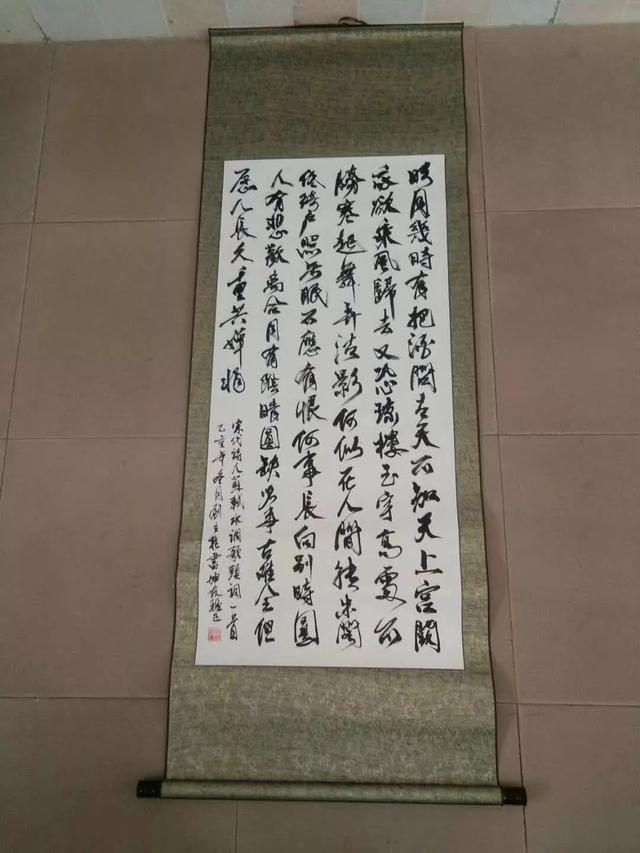 明月幾時有把酒問青天不知天上宮闕
我欲乘風歸去又恐瓊樓玉宇高處不
勝寒起舞弄清影何似在人間轉朱閣
低綺户照無眠不應有恨何事長向别時圓
人有悲歡离合月有陰晴圓缺此事古難全但
愿人長久重共嬋娟
宋代詩人蘇軾水調歌頭詞一首
乙亥年冬月劉書友雅正